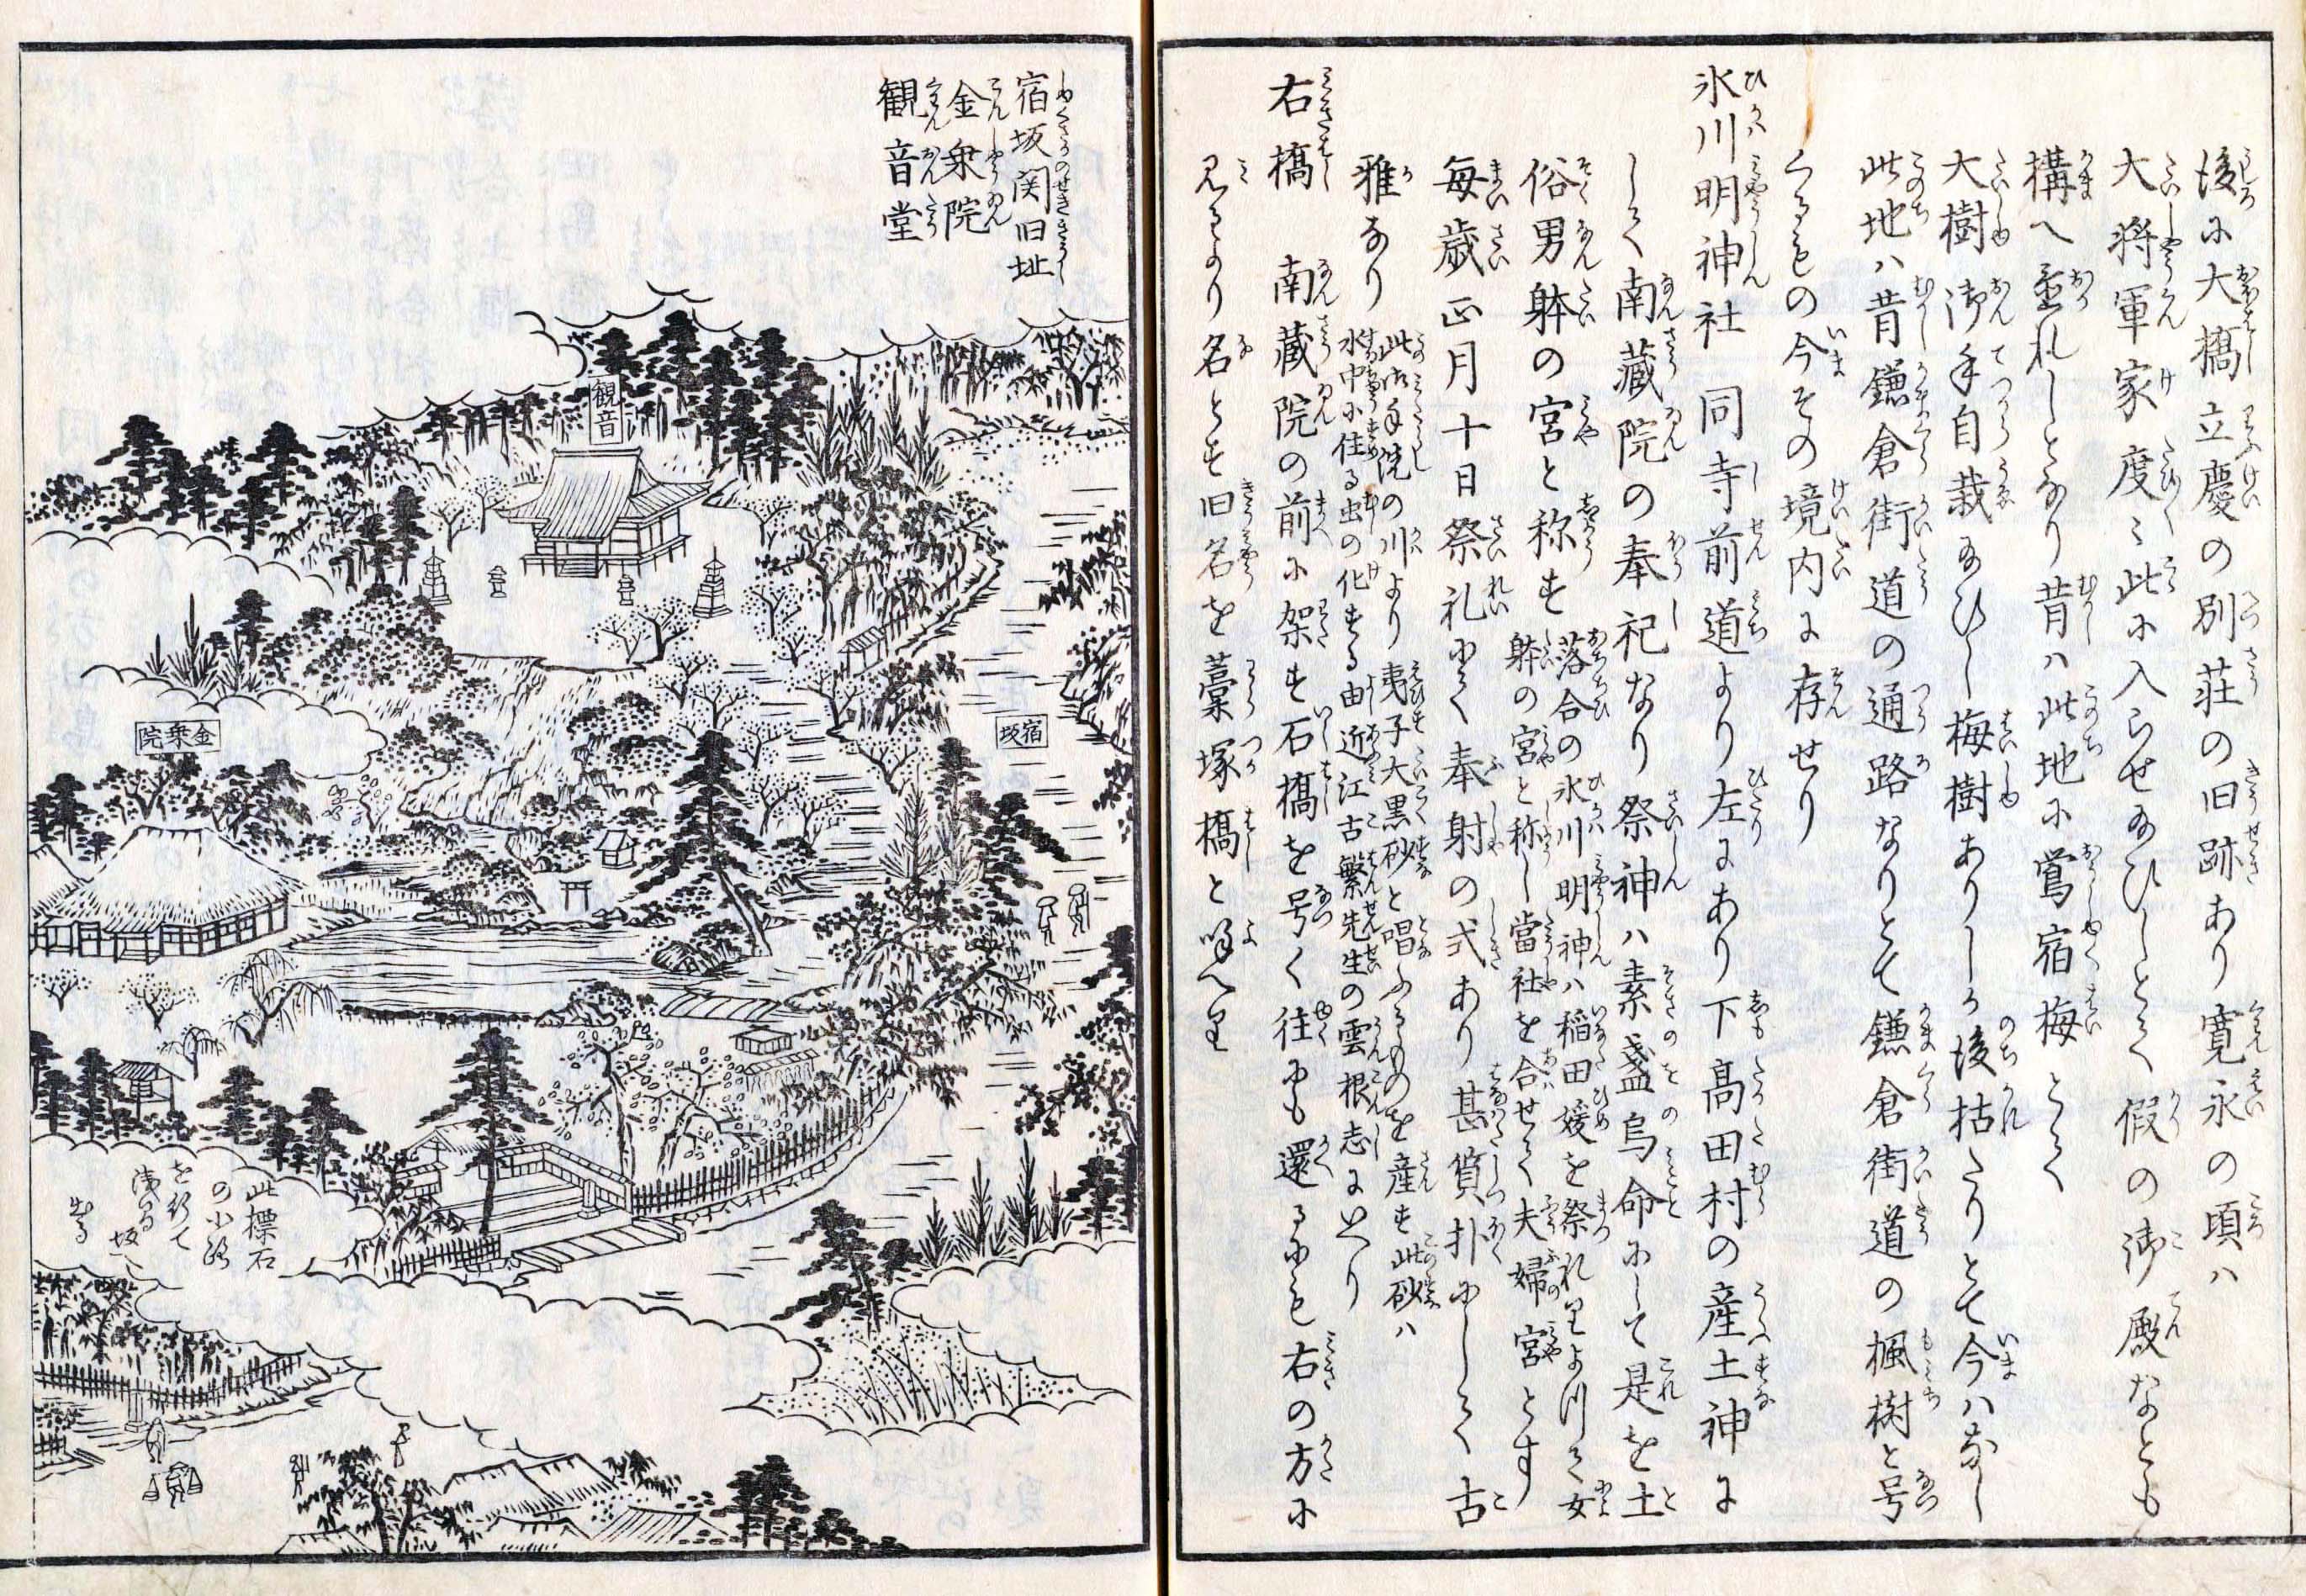 後に大橋立慶の別荘の旧跡あり寛永の頃ハ
大将軍家度〻此に入らせ給ひしとて假の御殿なとも
構へ置れしとなり昔ハ此地に鴬宿梅とて
大樹御手自栽給ひし梅樹ありしか後枯たりとて今ハなし
此地ハ昔鎌倉街道の通路なりとて鎌倉街道の楓樹と号
くるもの今その境内に存せり
氷川明神社 同寺前道より左にあり下髙田村の産土神に
して南藏院の奉祀なり祭神ハ素盞烏命にして是を土
俗男躰の宮と称す
落合の氷川明神ハ稲田媛を祭れりよつて女
躰の宮と称し當社を合せて夫婦宮とす
毎歳正月十日祭礼にて奉射の式あり甚質朴にして古
雅なり
此御手洗の川より夷子大黒砂と唱ふるものを産す此砂ハ
水中に住る虫の化する由近江古繁先生の雲根志にいへり
右橋 南藏院の前に架す石橋を号く往にも還るにも右の方に
見るより名とす旧名を藁塚橋と呼へり
宿坂関旧址
金乗院
観音堂
観音
宿坂
金乗院
此標石
の小路
を行て
坂へ
出る